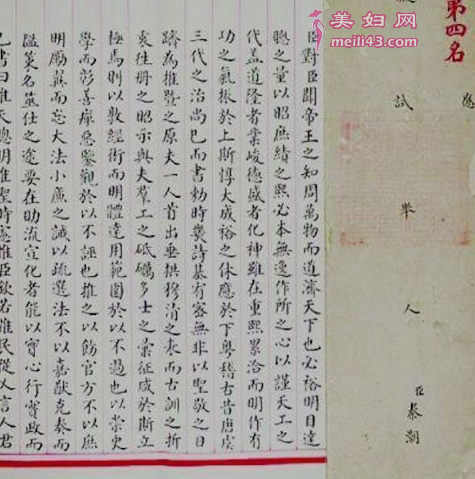 美妇网
meili43.com
第四名
應
試
舉
人
臣秦
臣對臣聞帝王之知周萬物而道濟天下也必裕明目達
聰之量以昭庶績之熙必本無逸作所之心以謹天工之
代蓋道隆者業峻德盛者化神雖在重熙累洽而明作有
功之氣振於上斯惇大成裕之休應於下粵稽古昔唐虞
三代之治尚已而書勅時幾詩基宥密無非以聖敬之日
躋為推暨之原夫一人首出垂拱穆清之表而古訓之折
衷往冊之昭示與夫羣工之砥礪多士之彙征咸於斯立
極焉則以敦經術而明體達用範圍於以不過也以崇史
學而彰善癉惡鑒觀於以不誣也推之以飭官方不以庶
明勵翼而忘大法小廉之誡以疏選法不以嘉猷克奏而
隘策名筮仕之途要在助流宣化者能以實心行實政而
已書曰惟天聰明惟聖時憲惟臣欽若惟民從乂言人君